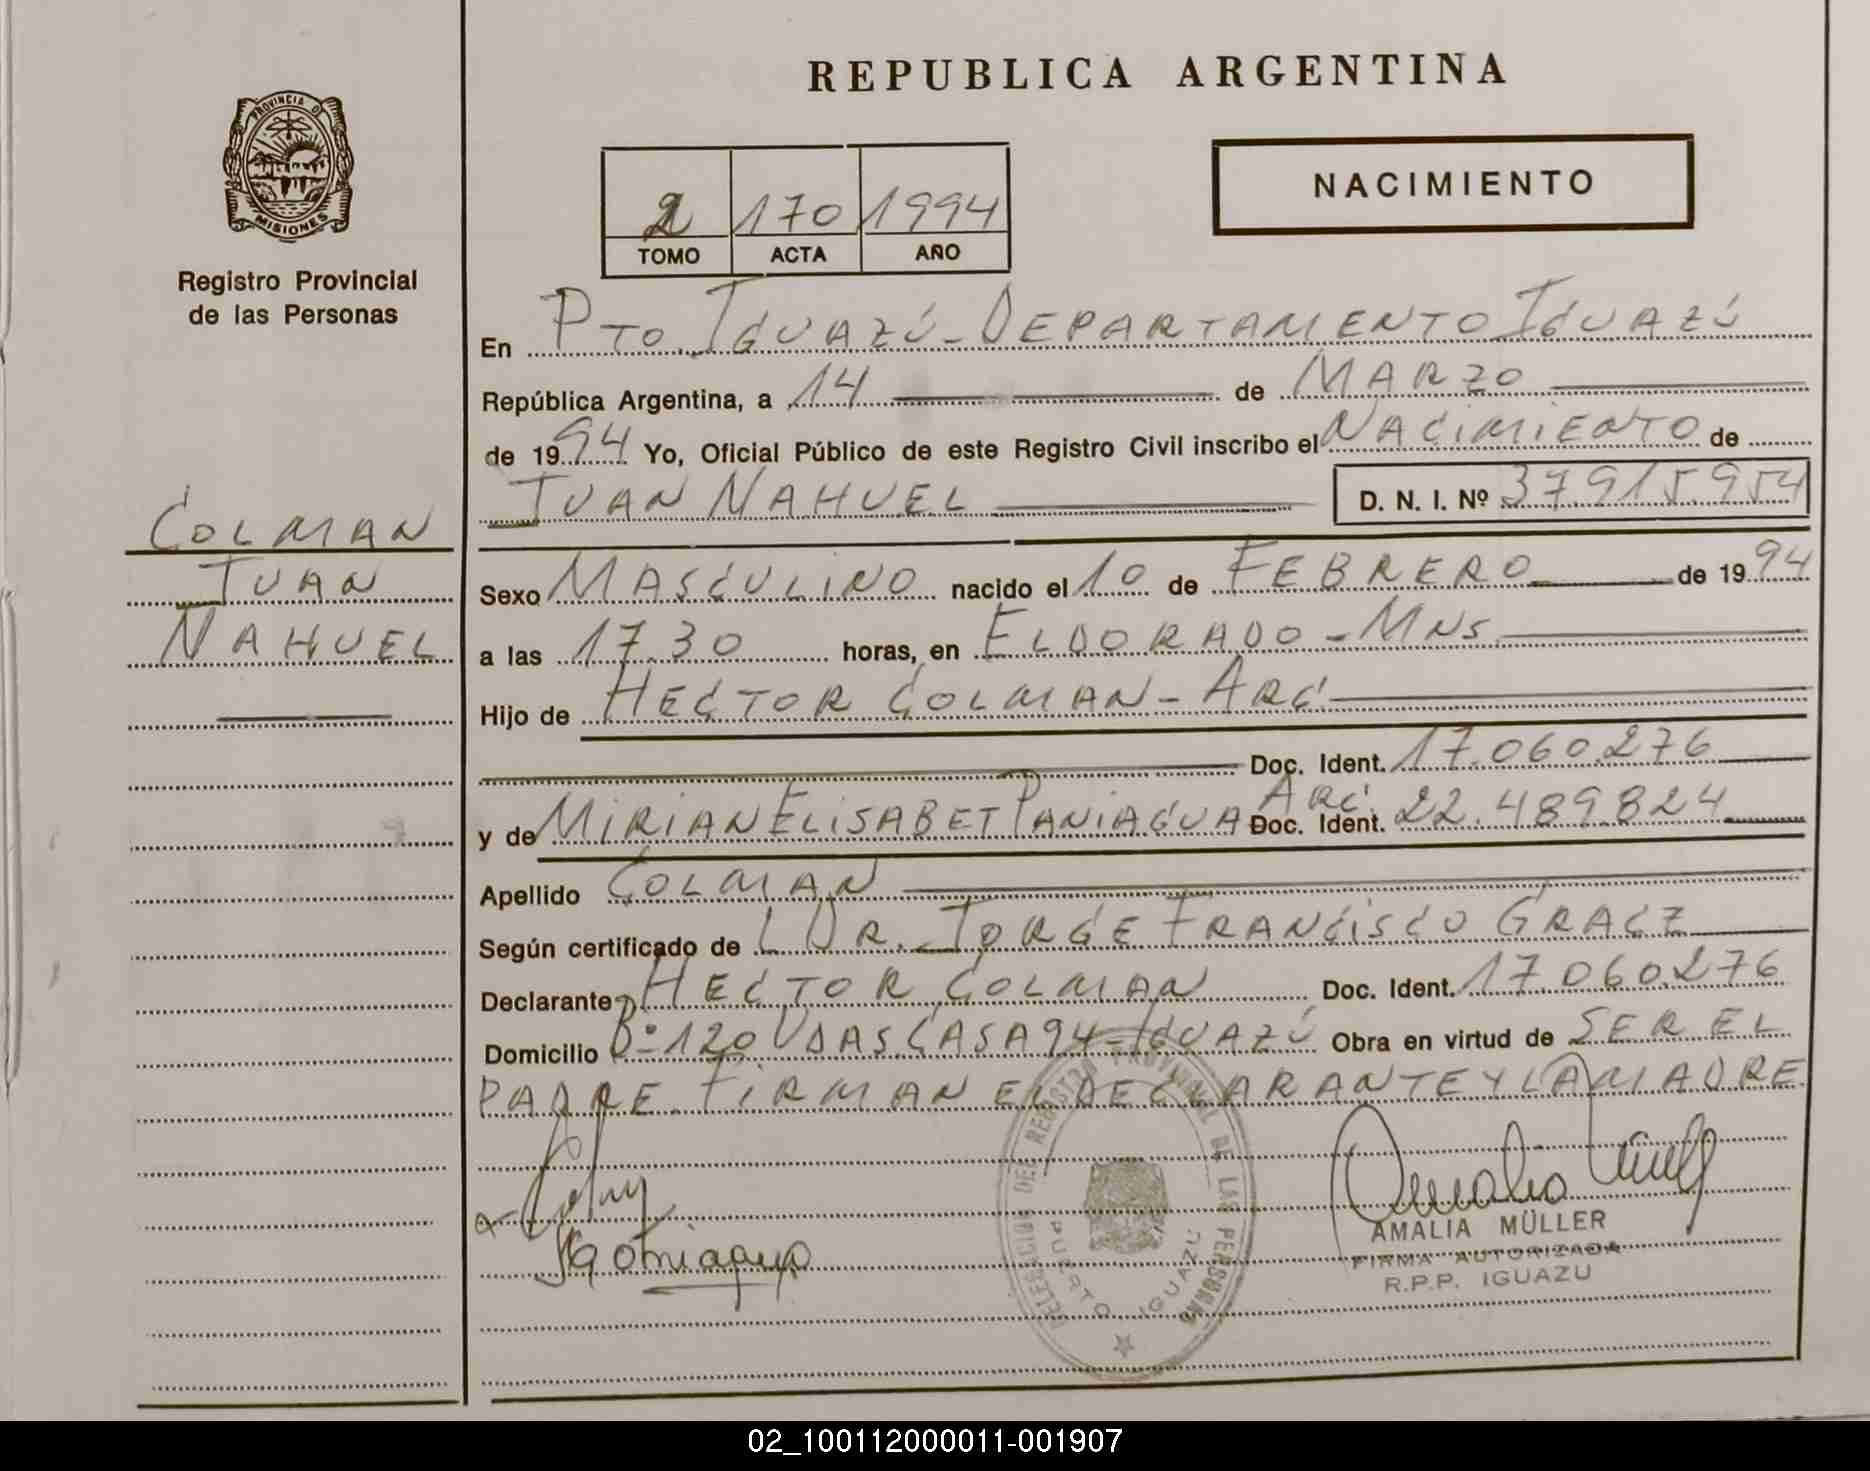 REPUBLICA ARGENTINA
PROVINCIA D
MISIONES
Registro Provincial
de las Personas
NACIMIENTO
2 170 1994
TOMO ACTA AÑO
En PTO. IGUAZÚ - DEPARTAMENTO IGUAZÚ
República Argentina, a 14 de MARZO
de 1994 Yo, Oficial Público de este Registro Civil inscribo el NACIMIENTO de
JUAN NAHUEL D. N. I. Nº 37.915.954
COLMAN
JUAN
NAHUEL
Sexo MASCULINO nacido el 10 de FEBRERO de 1994
a las 17.30 horas, en ELDORADO - MNS.
Hijo de HECTOR COLMAN - ARG.
Doc. Ident. 17.060.276
y de MIRIAN ELISABET PANIAGUA ARG. Doc. Ident. 22.489.824
Apellido COLMAN
Según certificado de DR. JORGE FRANCISCO
Declarante HECTOR COLMAN Doc. Ident. 17.060.276
Domicilio Bº 120 VDAS CASA 94 - IGUAZÚ Obra en virtud de SER EL
PADRE. FIRMAN EL DECLARANTE Y LA MADRE.
DELEGACION DEL REGISTRO PROVINCIAL DE LAS PERSONAS
PUERTO IGUAZU
AMALIA MÜLLER
FIRMA AUTORIZADA
R.P.P. IGUAZU
02_100112000011-001907